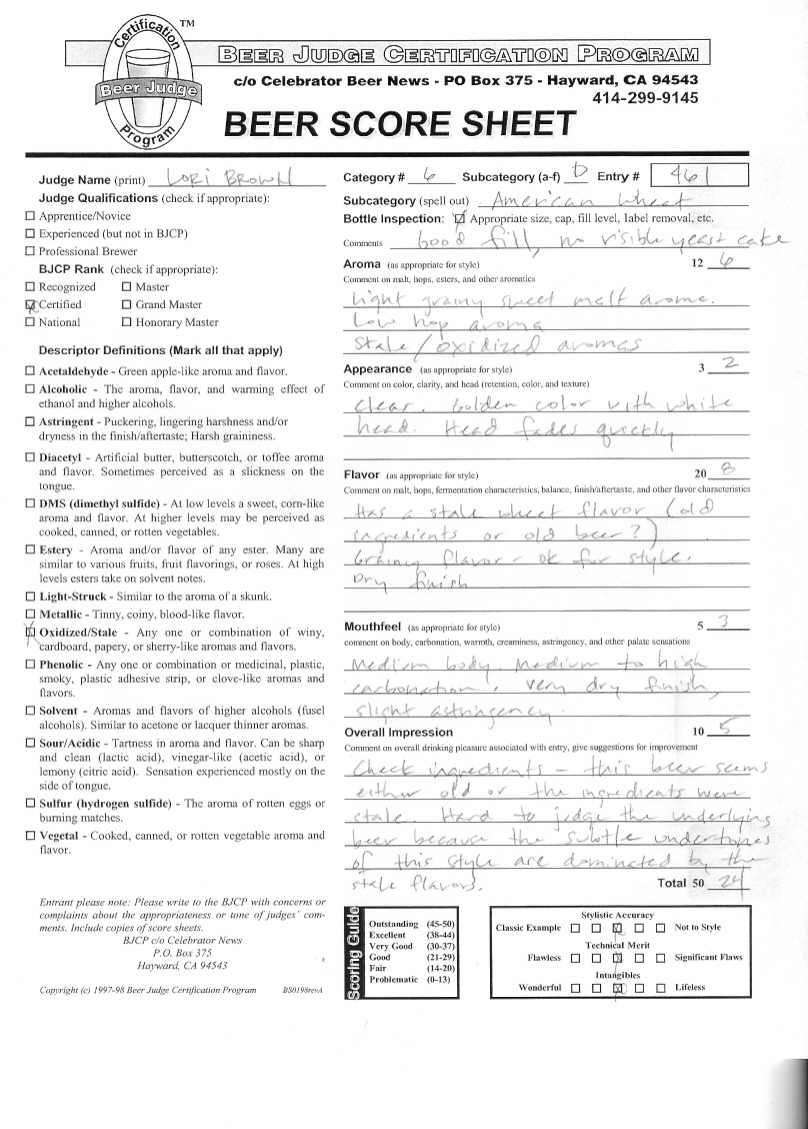 Certification TM
Beer Judge
Program
BEER JUDGE CERTIFICATION PROGRAM
c/o Celebrator Beer News - PO Box 375 - Hayward, CA 94543
414-299-9145
BEER SCORE SHEET
Judge Name (print) Lori Brown
Judge Qualifications (check if appropriate):
Apprentice/Novice
Experienced (but not in BJCP)
Professional Brewer
BJCP Rank (check if appropriate):
Recognized Master
Certified Grand Master
National Honorary Master
Descriptor Definitions (Mark all that apply)
Acetaldehyde - Green apple-like aroma and flavor.
Alcoholic - The aroma, flavor, and warming effect of
ethanol and higher alcohols.
Astringent - Puckering, lingering harshness and/or
dryness in the finish/aftertaste; Harsh graininess.
Diacetyl - Artificial butter, butterscotch, or toffee aroma
and flavor. Sometimes perceived as a slickness on the
tongue.
DMS (dimethyl sulfide) - At low levels a sweet, corn-like
aroma and flavor. At higher levels may be perceived as
cooked, canned, or rotten vegetables.
Estery - Aroma and/or flavor of any ester. Many are
similar to various fruits, fruit flavorings, or roses. At high
levels esters take on solvent notes.
Light-Struck - Similar to the aroma of a skunk.
Metallic - Tinny, coiny, blood-like flavor.
Oxidized/Stale - Any one or combination of winy,
cardboard, papery, or sherry-like aromas and flavors.
Phenolic - Any one or combination or medicinal, plastic,
smoky, plastic adhesive strip, or clove-like aromas and
flavors.
Solvent - Aromas and flavors of higher alcohols (fusel
alcohols). Similar to acetone or lacquer thinner aromas.
Sour/Acidic - Tartness in aroma and flavor. Can be sharp
and clean (lactic acid), vinegar-like (acetic acid), or
lemony (citric acid). Sensation experienced mostly on the
side of tongue.
Sulfur (hydrogen sulfide) - The aroma of rotten eggs or
burning matches.
Vegetal - Cooked, canned, or rotten vegetable aroma and
flavor.
Entrant please note: Please write to the BJCP with concerns or
complaints about the appropriateness or tone of judges' com-
ments. Include copies of score sheets.
BJCP c/o Celebrator News
P.O. Box 375
Hayward, CA 94543
Copyright (c) 1997-98 Beer Judge Certification Program BS0198revA
Category # 6 Subcategory (a-f) b Entry # 461
Subcategory (spell out) American Wheat
Bottle Inspection: Appropriate size, cap, fill level, label removal, etc.
Comments Good fill, no visible yeast cake
Aroma (as appropriate for style) 12 6
Comment on malt, hops, esters, and other aromatics
Light grainy sweet malt aroma.
Low hop aroma
Stale/oxidized aromas
Appearance (as appropriate for style) 3 2
Comment on color, clarity, and head (retention, color, and texture)
Clear. Golden color with white
head. Head fades quickly
Flavor (as appropriate for style) 20 8
Comment on malt, hops, fermentation characteristics, balance, finish/aftertaste, and other flavor characteristics
Has a stale wheat flavor (old
ingredients or old beer?)
Grainy flavor - ok for style.
Dry finish
Mouthfeel (as appropriate for style) 5 3
comment on body, carbonation, warmth, creaminess, astringency, and other palate sensations
Medium body. Medium to high
carbonation, very dry finish,
slight astringency.
Overall Impression 10 5
Comment on overall drinking pleasure associated with entry, give suggestions for improvement
Check ingredients - this beer seems
either old or the ingredients were
stale. Hard to judge the underlying
beer because the subtle undertones
of this style are dominated by the
stale flavors.
Total 50 24
Scoring Guide
Outstanding (45-50)
Excellent (38-44)
Very Good (30-37)
Good (21-29)
Fair (14-20)
Problematic (0-13)
Stylistic Accuracy
Classic Example Not to Style
Technical Merit
Flawless Significant Flaws
Intangibles
Wonderful Lifeless